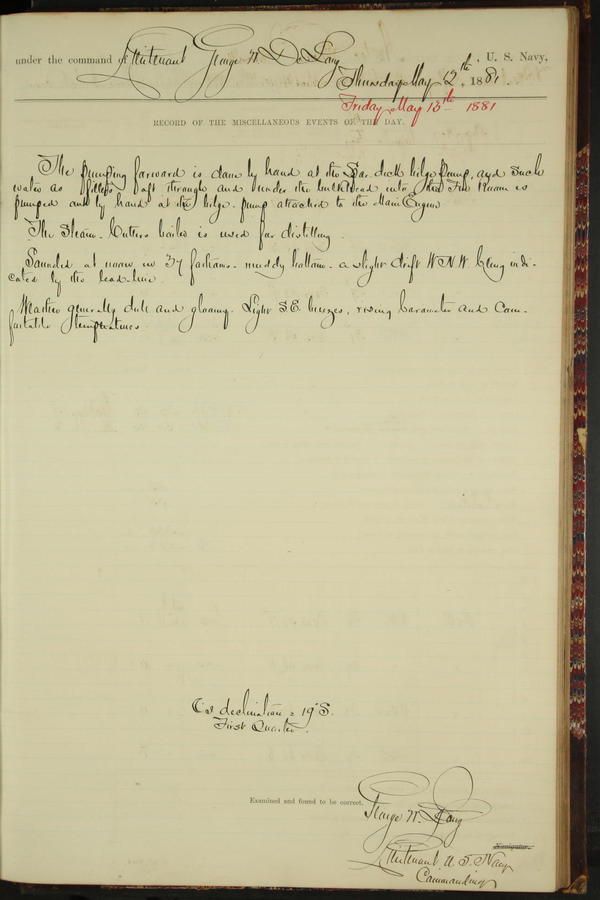 under the command of Lieutenant George W. De Long, U. S. Navy,
Thursday May 12th, 1881.
Friday May 13th 1881
RECORD OF THE MISCELLANEOUS EVENTS OF THE DAY.
The pumping forward is done by hand at the Spar deck bilge pump, and such
water as filters aft through and under the bulkhead into the Fire Room is
pumped out by hand at the bilge pump attached to the Main Engine
The Steam Cutters boiler is used for distilling.
Sounded at noon in 37 fathoms - muddy bottom - a slight drift W.N.W. being indi-
cated by the lead-line
Weather generally dull and gloomy. Light S.E. breezes, rising barometer and com-
fortable temperatures
C's declination = 19° S.
First Quarter
Examined and found to be correct.
George W. De Long
Navigator.
Lieutenant U. S. Navy
Commanding